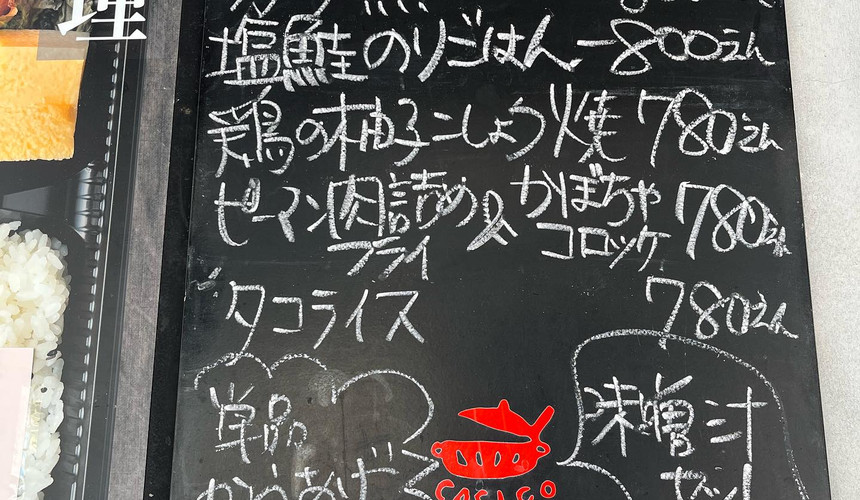 理
塩鮭のりごはん 800えん
鶏の柚子こしょう焼 780えん
ピーマン肉詰め & かぼちゃ 780えん
フライ コロッケ
タコライス 780えん
単品
からあげ
味噌汁